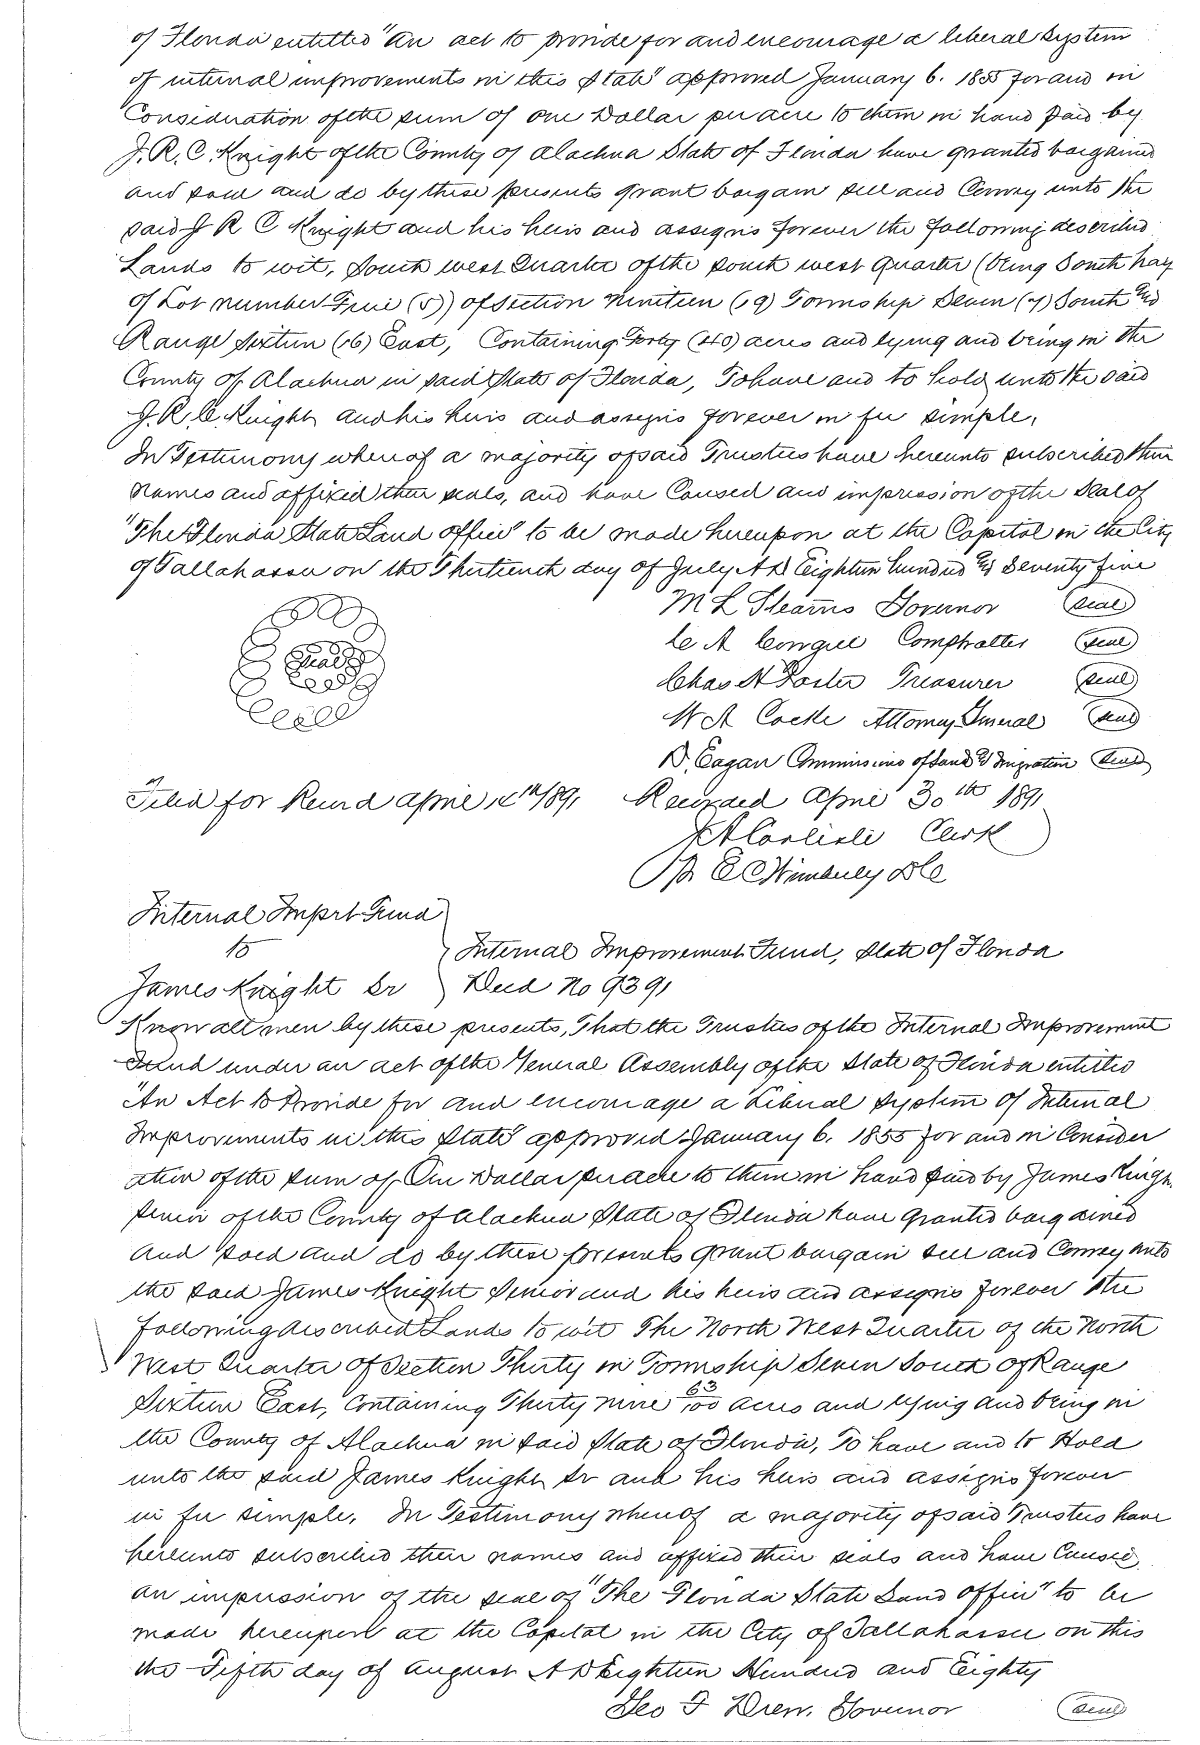 of Florida entitled "an act to provide for and encourage a liberal System
of internal improvements in this State" approved January 6. 1855 for and in
Consideration of the sum of one Dollar per acre to them in hand paid by
J. R. C. Knight of the County of Alachua State of Florida have granted bargained
and sold and do by these presents grant bargain sell and Convey unto the
said J R C Knight and his heirs and assigns forever the following described
Lands to wit, South west Quarter of the south west quarter (being South half
of Lot number Five (5)) of Section Nineteen (19) Township Seven (7) South &
Range Sixteen (16) East, Containing Forty (40) acres and lying and being in the
County of Alachua in said State of Florida, To have and to hold unto the said
J. R. C. Knight and his heirs and assigns forever in fee simple.
In Testimony whereof a majority of said Trustees have hereunto subscribed their
names and affixed their seals, and have Caused and impression of the Seal of
"The Florida State Land office" to be made hereupon at the Capitol in the City
of Tallahassee on the Thirteenth day of July AD Eighteen hundred & Seventy five
M L Stearns Governor (seal)
C A Cowgill Comptroller (seal)
Seal
Chas H Foster Treasurer (seal)
W A Cocke Attorney General (seal)
D. Eagan Commissions of Land & Imigration (seal)
Filed for Record April 1891 Recorded April 30th 1891
J A Carlisle Clerk
Pr E C Wimberly DC
Internal Imprt Fund
to
Internal Improvement Fund, State of Florida
James Knight Sr Deed No 9391
Know all men by these presents, That the Trustees of the Internal Improvement
Fund under an act of the General Assembly of the State of Florida entitled
"An Act to Provide for and encourage a Liberal System of Internal
Improvements in this State" approved January 6. 1855 for and in Consider
ation of the sum of One Dollar per acre to them in hand paid by James Knight
Senior of the County of Alachua State of Florida have granted bargained
And sold and do by these presents grant bargain sell and Convey unto
the said James Knight Senior and his heirs and assigns forever the
following described Lands to wit The North West Quarter of the North
West Quarter of Section Thirty in Township Seven South of Range
Sixteen East, Containing Thirty nine 63/100 acres and lying and being in
the County of Alachua in said State of Florida, To have and to Hold
unto the said James Knight Sr and his heirs and assigns forever
in fee simple. In Testimony whereof a majority of said Trustees have
hereunto subscribed their names and affixed their seals and have Caused
an impression of the seal of "The Florida State Land Office" to be
made hereupon at the Capitol in the City of Tallahassee on this
the Fifth day of August A D Eighteen Hundred and Eighty
Geo F Drew. Governor (seal)